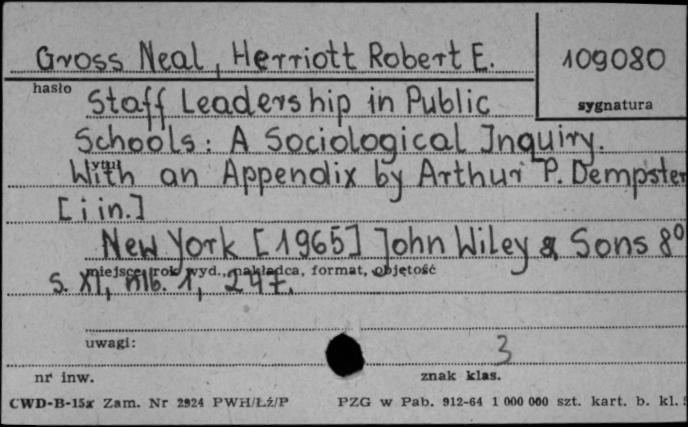 Gross Neal, Herriott Robert E.
109080
hasło
sygnatura
Staff Leadership in Public
Schools: A Sociological Inquiry.
tytuł
With an Appendix by Arthur P. Dempster
[i in.]
New York [1965] John Wiley & Sons 8°
miejsce, rok wyd., nakładca, format, objętość
s. XI, nlb. 1, 247.
uwagi:
3
nr inw.
znak klas.
CWD-B-15x Zam. Nr 2924 PWH/Łż/P PZG w Pab. 912-64 1 000 000 szt. kart. b. kl.